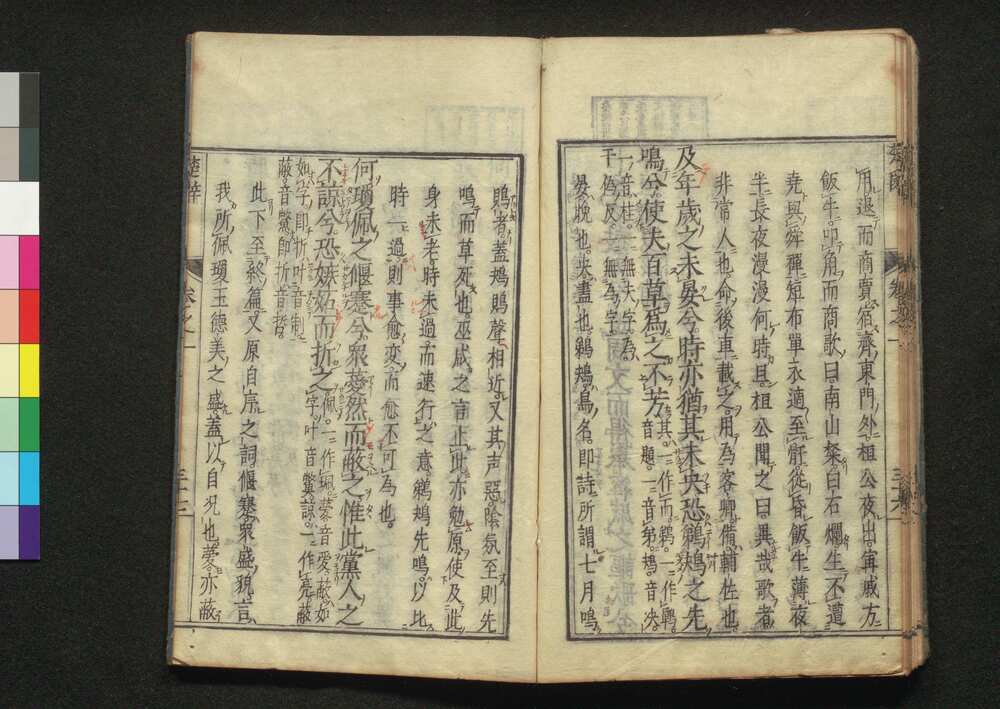 用退而商賈宿齊東門外桓公夜出甯戚方
飯牛叩角而商歌曰南山粲白石爛生不遭
堯與舜禪短布單衣適至骭從昏飯牛薄夜
半長夜漫漫何時旦桓公聞之曰異哉歌者
非常人也命後車載之用為客卿備輔佐也
及年歲之未晏兮時亦猶其未央恐鵜鴂之先
鳴兮使夫百草為之不芳
其一作而鵜一作鷤
音題一音弟鴂音決
一音桂一無夫字為
于偽反一無為字
晏晚也央盡也鵜鴂鳥名即詩所謂七月鳴
鵙者蓋鴂鵙聲相近又其声惡陰氛至則先
鳴而草死也巫咸之言止此亦勉原使及此
身未老時未過而速行之意鵜鴂先鳴以比
時一過則事愈変而愈不可為也
何瓊佩之偃蹇兮衆薆然而蔽之惟此黨人之
不諒兮恐嫉妬而折之
佩一作珮薆音愛蔽如
字叶音鷩諒一作亮蔽
如字即折叶音制
蔽音鷩即折音哲
此下至終篇又原自序之詞偃蹇衆盛貌言
我所佩瓊玉德美之盛蓋以自況也薆亦蔽
楚辞
卷之一